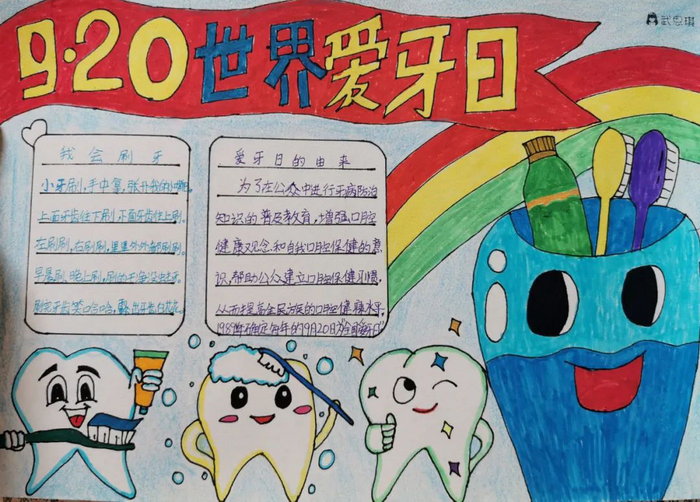 9·20世界爱牙日
武思琪
我会刷牙
小牙刷,手中拿,张开我的小嘴巴。
上面牙齿往下刷,下面牙齿往上刷。
左刷刷,右刷刷,里里外外都刷刷。
早晨刷,晚上刷,刷的干净没蛀牙。
刷完牙齿笑哈哈,露出牙齿白花花。
爱牙日的由来
为了在公众中进行牙病防治
知识的普及教育,增强口腔
健康观念和自我口腔保健的意
识,帮助公众建立口腔保健习惯,
从而提高全民族的口腔健康水平,
1989年确定每年的9月20日为“全国爱牙日”